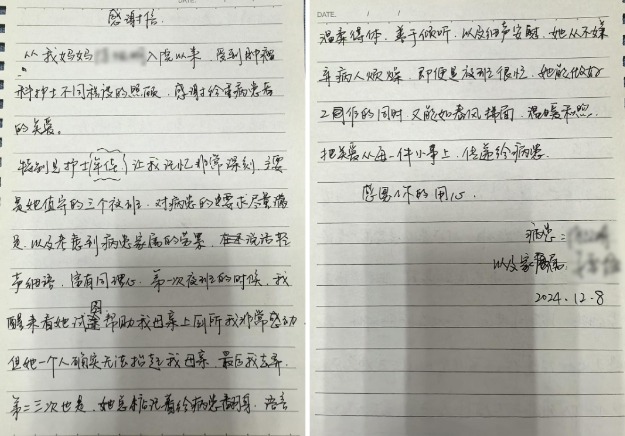 感谢信
从我妈妈 入院以来，受到肿瘤
科护士不同程度的照顾，感谢给重病患者
的关爱。
特别是护士 让我记忆非常深刻，主要
是她值守的三个夜班，对病患的要求尽量满
足，以及考虑到病患家属的苦累，在 说话轻
声细语，富有同理心，第一次夜班的时候，我
醒来看她试图帮助我母亲上厕所我非常感动
但她一个人确实无法抬起我母亲，最后我去弄，
第二三次也是，她总惦记着给病患翻身，语言
DATE
温柔得体，善于倾听，以及细声安慰，她从不嫌
弃病人烦燥，即便是夜班很忙，她能做好
工作的同时，又能如春风拂面，温暖和煦，
把关爱从每一件小事上，传递给病患。
感恩你的用心.
病患：
以及家属
2024.12.8